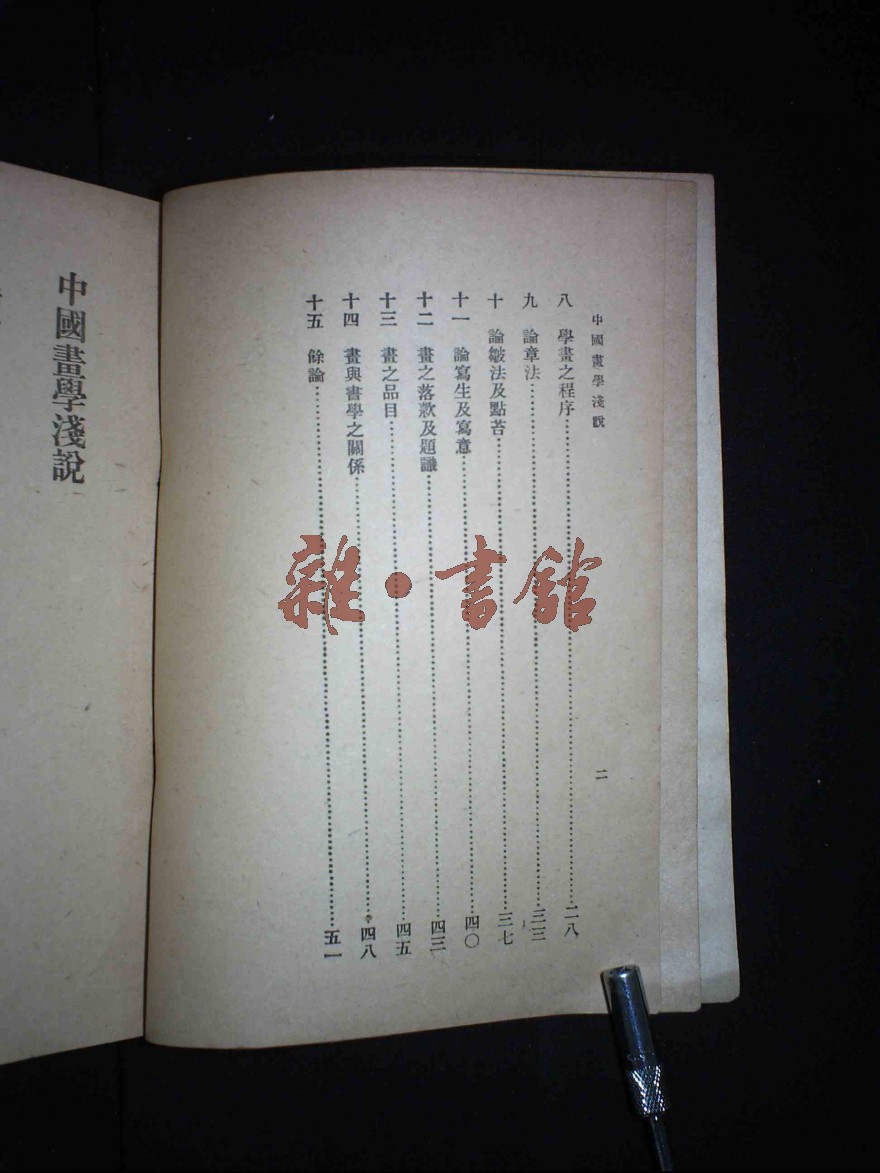 中國畫學淺說
二
八 學畫之程序……二八
九 論章法……三三
十 論皴法及點苔……三七
十一 論寫生及寫意……四〇
十二 畫之落欵及題識……四三
十三 畫之品目……四五
十四 畫與書學之關係……四八
十五 餘論……五一
中國畫學淺說
雜·書館